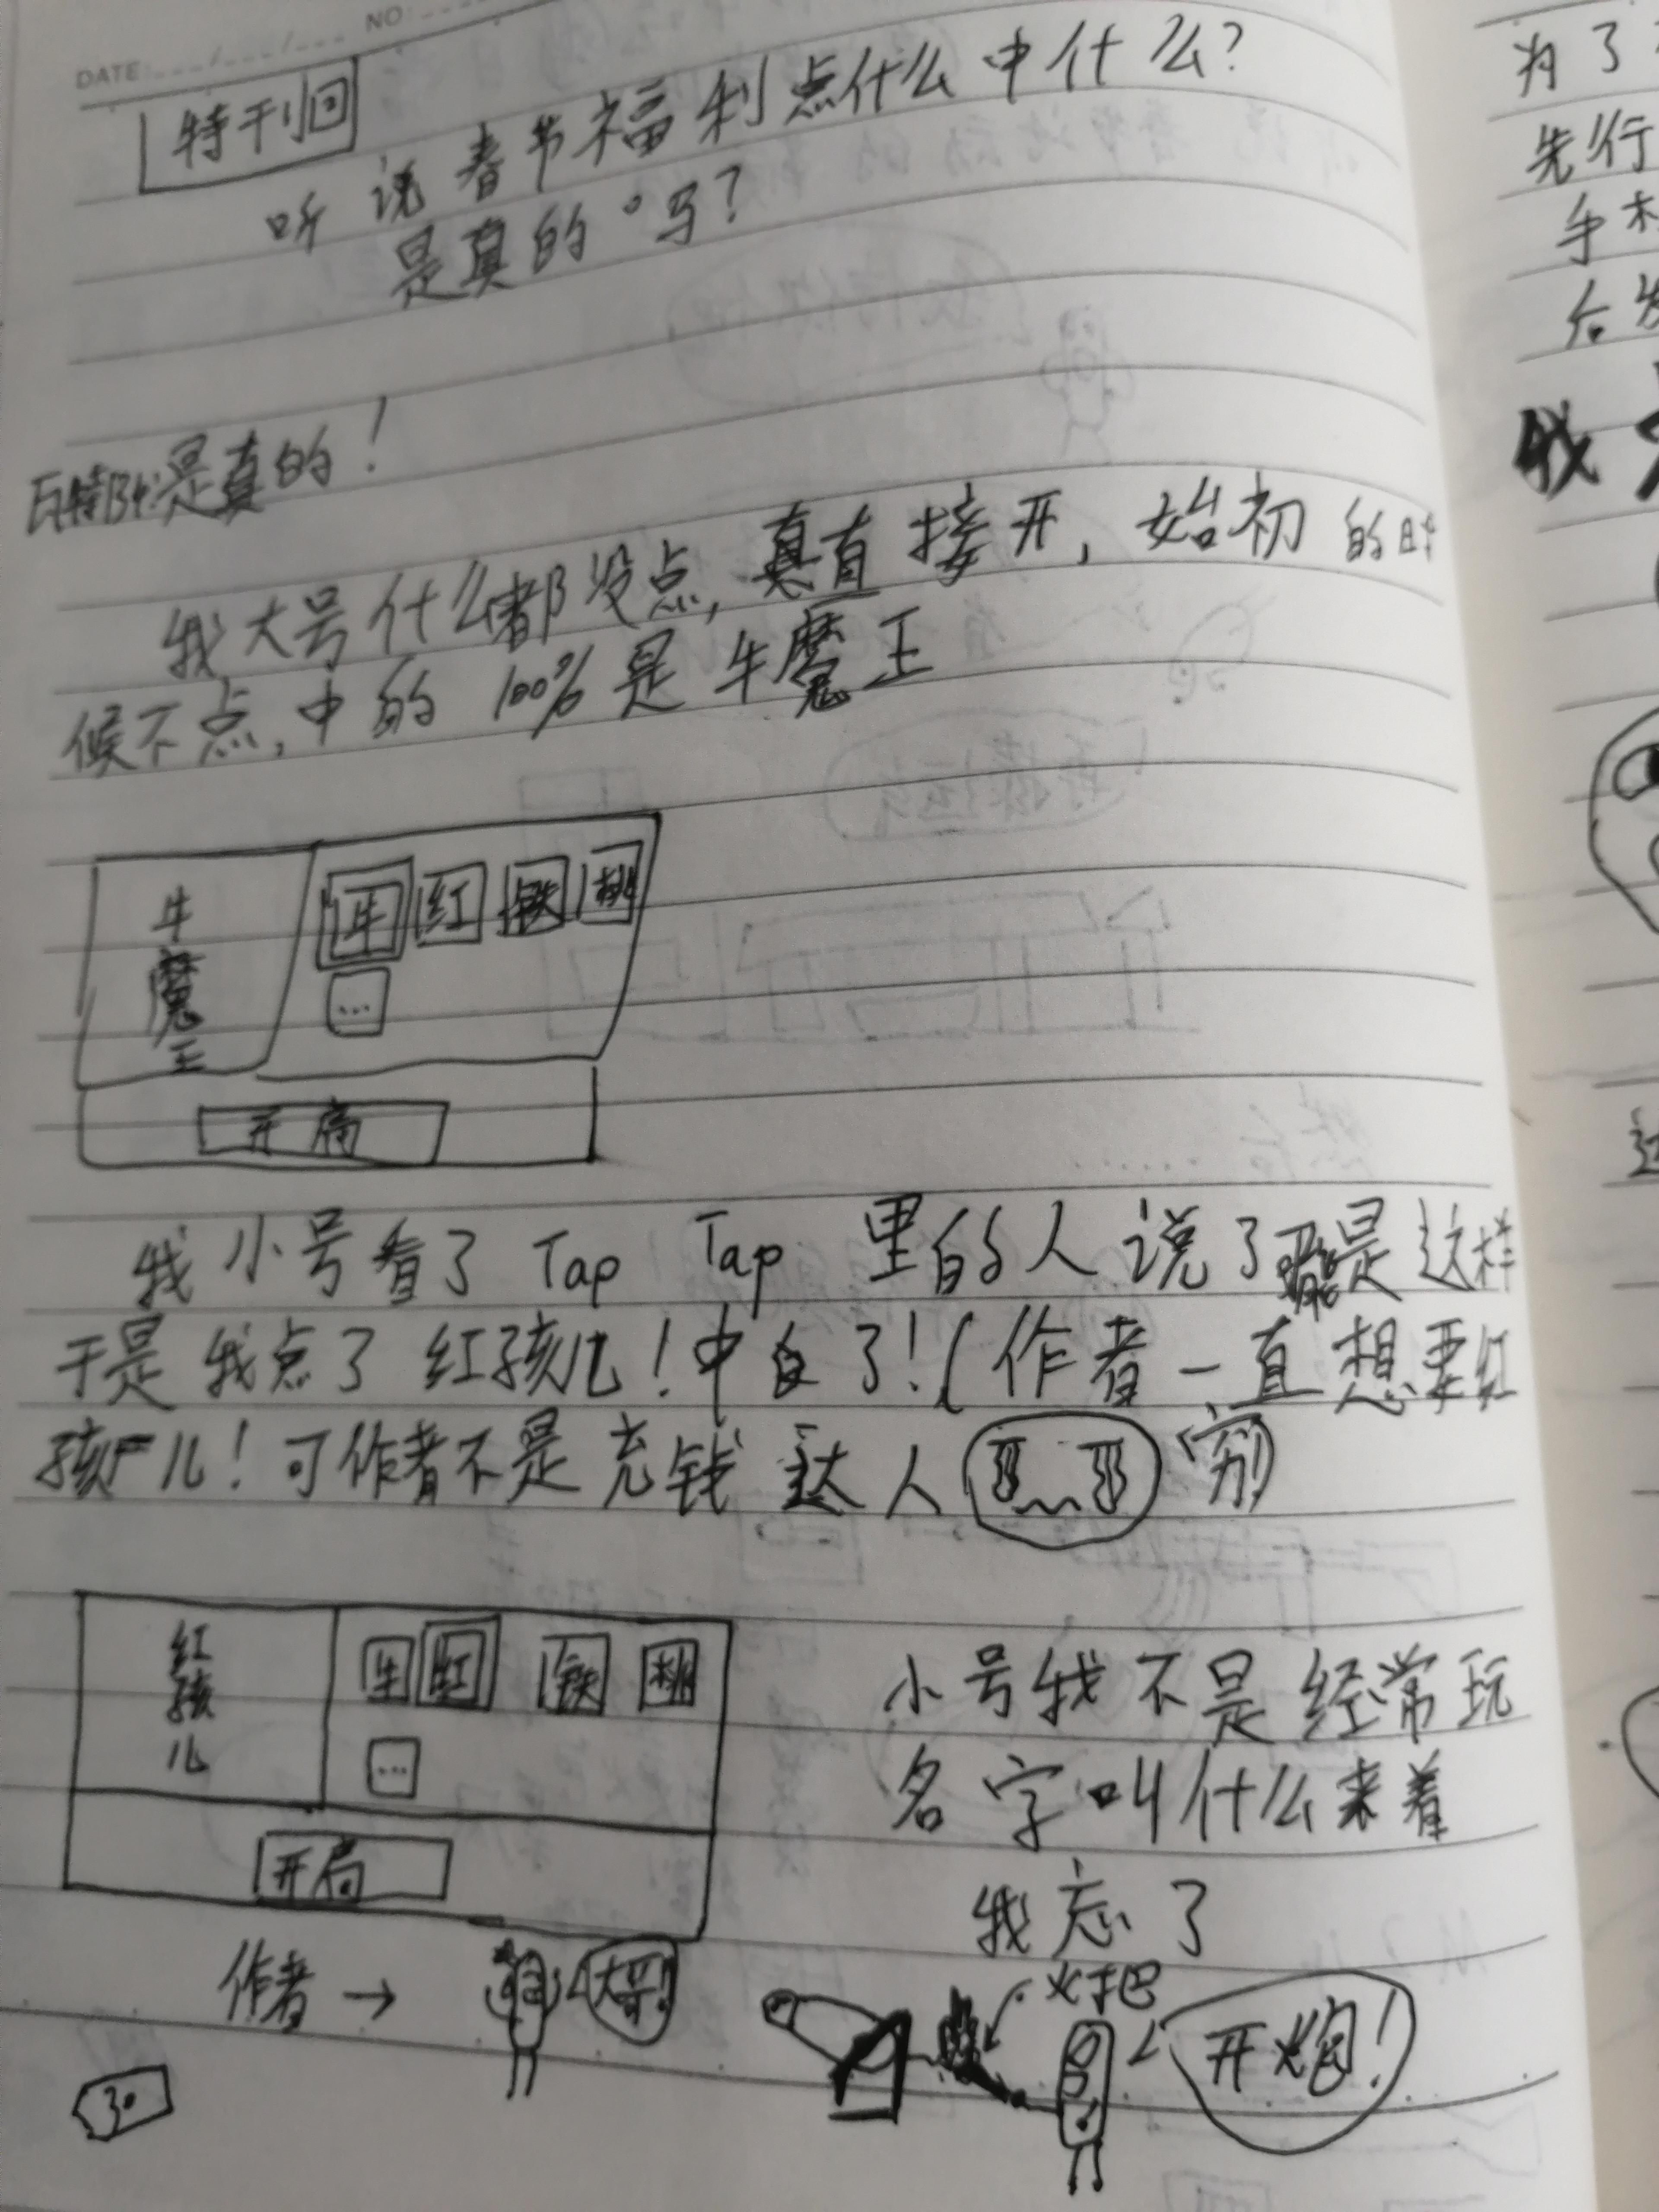 DATE:
NO:
特刊回
听说春节福利点什么中什么?
是真的吗?
是真的!
我大号什么都没点,真直接开,始初的时
候不点,中的100%是牛魔王
牛魔王
牛 红 铁 桃
...
开局
我小号看了 Tap Tap 里的人说了是这样
于是我点了红孩儿!中了!(作者一直想要红
孩儿!可作者不是充钱达人 (穷)
红孩儿
牛 红 铁 桃
...
开局
小号我不是经常玩
名字叫什么来着
我忘了
作者→
大哥!
火把
开炮!
30
为了
先行
手
后发
我
这